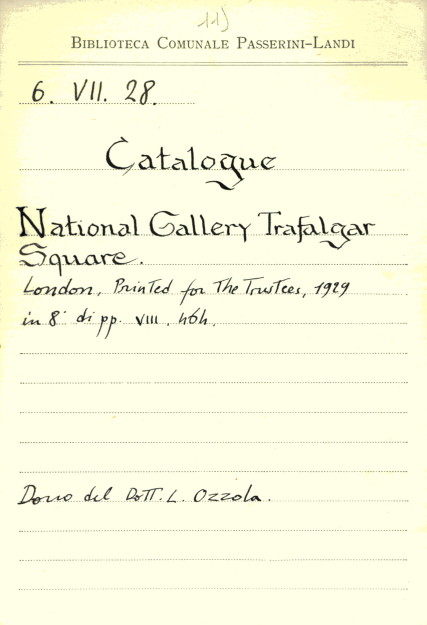 11)
BIBLIOTECA COMUNALE PASSERINI-LANDI
6. VII. 28.
Catalogue
National Gallery Trafalgar
Square.
London, Printed for The Trustees, 1929
in 8° di pp. VIII. 464.
Dono del Dott. L. Ozzola.